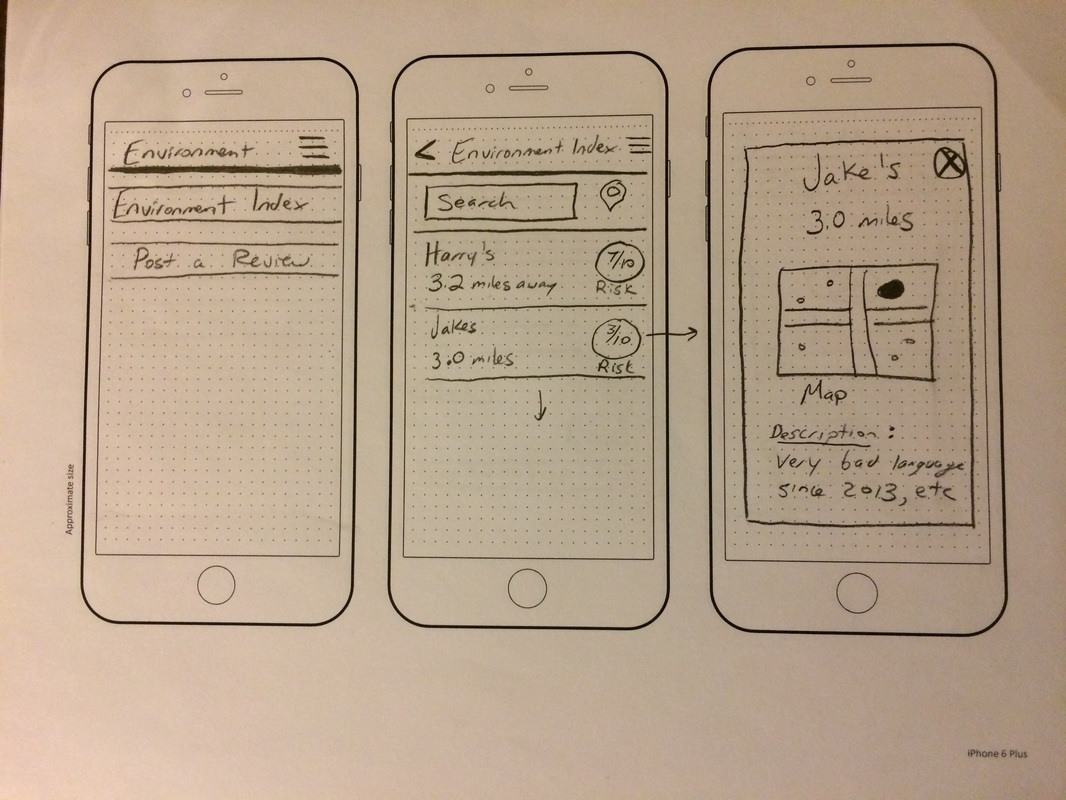 Environment
Environment Index
Post a Review
< Environment Index
Search
Harry's
3.2 miles away
7/10
Risk
Jakes
3.0 miles
3/10
Risk
Jake's
X
3.0 miles
Map
Description:
Very bad language
since 2013, etc
Approximate size
iPhone 6 Plus